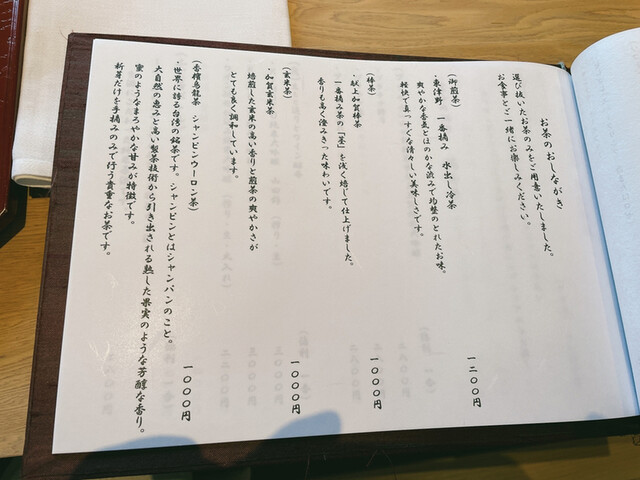 お茶のおしながき
選び抜いたお茶のみをご用意いたしました。
お食事とご一緒にお楽しみください。
(御煎茶)
・東津野 一番摘み 水出し冷茶 一二〇〇円
爽やかな香気とほのかな渋みで均整のとれたお味。
軽快で真っすぐな清々しい美味しさです。
(棒茶)
・献上加賀棒茶 一〇〇〇円
一番摘み茶の「茎」を浅く焙じて仕上げました。
香りも高く澄みきった味わいです。
(玄米茶)
・加賀玄米茶 一〇〇〇円
焙煎した玄米の高い香りと煎茶の爽やかさが
とても良く調和しています。
(香檳烏龍茶 シャンピンウーロン茶) 一〇〇〇円
・世界に誇る台湾の銘茶です。シャンピンとはシャンパンのこと。
大自然の恵みと高い製茶技術から引き出される熟した果実のような芳醇な香り。
蜜のようなまろやかな甘みが特徴です。
新芽だけを手摘みのみで行う貴重なお茶です。